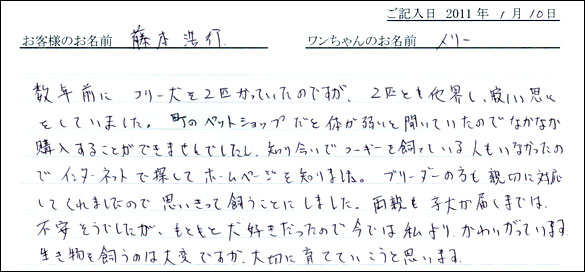 ご記入日 2011年 1月 10日
お客様のお名前 藤本 浩行 ワンちゃんのお名前 メリー
数年前に コリー犬を2匹かっていたのですが、2匹とも他界し、寂しい思い
をしていました。町のペットショップだと体が弱いと聞いていたのでなかなか
購入することができませんでしたし、知り合いでコーギーを飼っている人もいなかったの
でインターネットで探してホームページを知りました。ブリーダーの方も親切に対応
してくれましたので思いきって飼うことにしました。両親も子犬が届くまでは
不安そうでしたが、もともと犬好きだったので今では私よりかわいがっています。
生き物を飼うのは大変ですが、大切に育てていこうと思います。